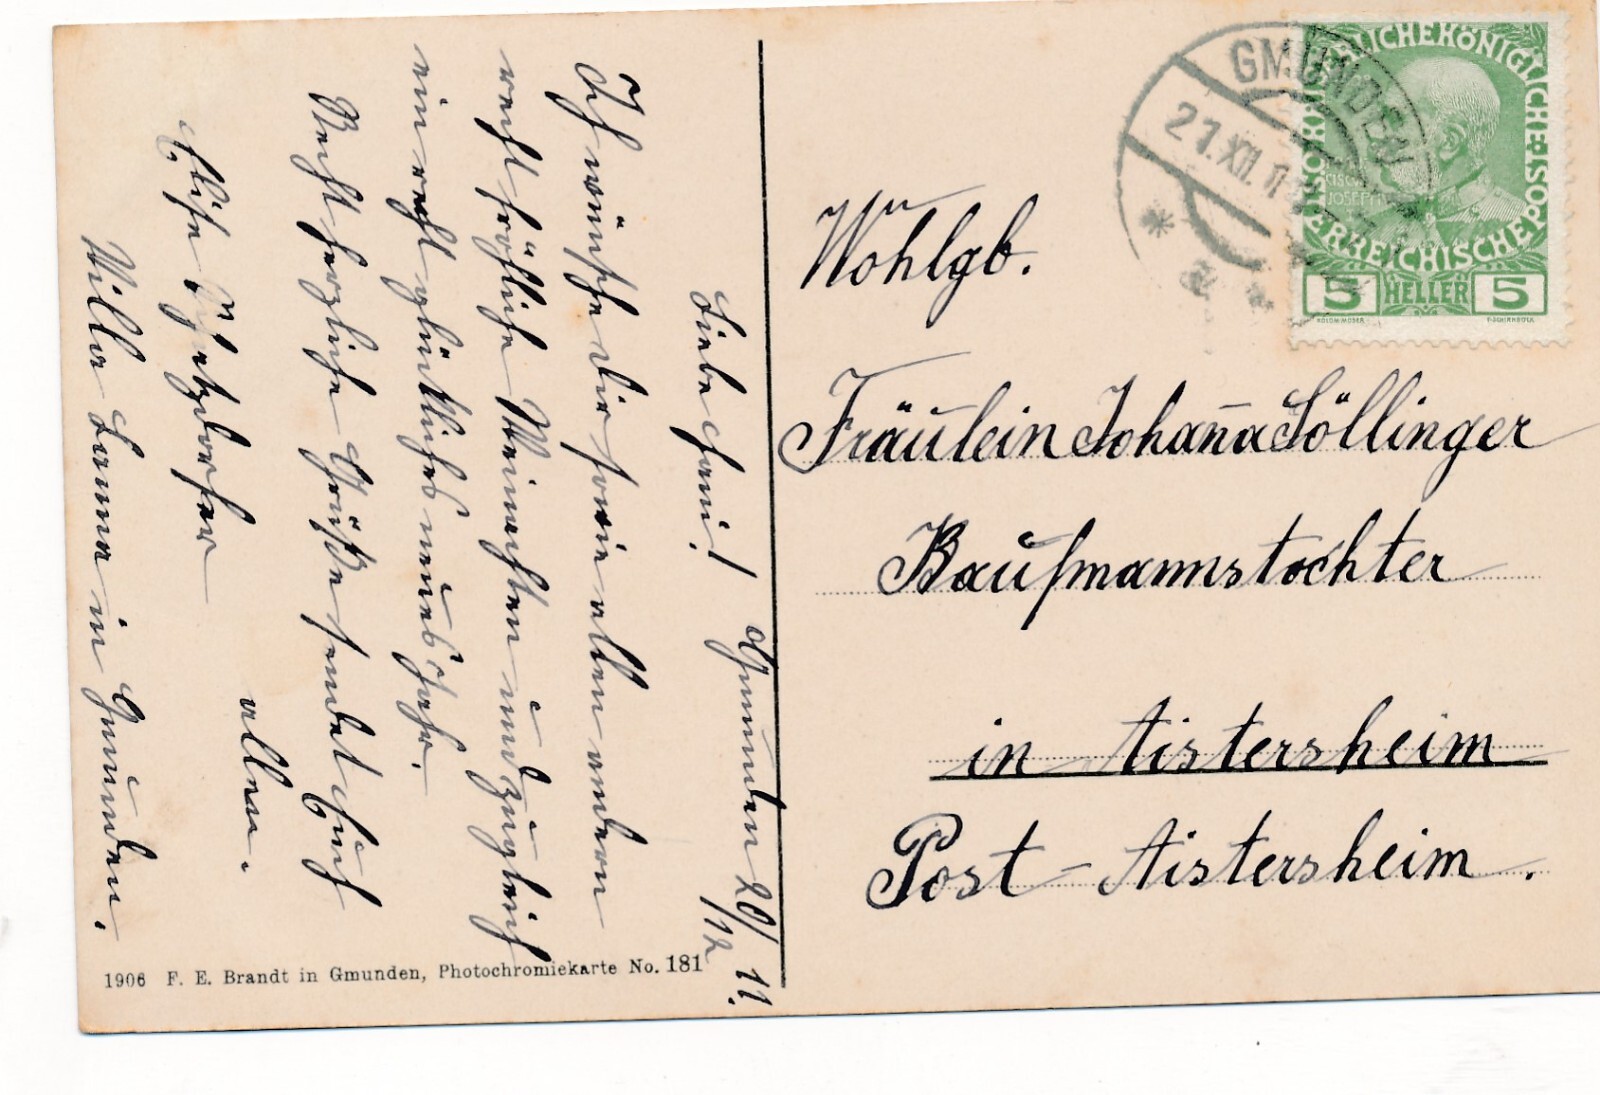 Gmunden 20/12 11.
Liebe Hani!
Ich wünsche dir sowie allen andern
recht fröhliche Weinachten und zugleich
ein recht glückliches neues Jahr.
Recht herzliche Grüße sendet Euch
allen.
Elise
Villa Lanna in Gmunden.
1906 F. E. Brandt in Gmunden, Photochromiekarte No. 181
GMUNDEN
21.XII.11
KAISERLICHE KÖNIGLICHE ÖSTERREICHISCHE POST
5 HELLER 5
Wohlgb.
Fräulein Johanna Söllinger
Kaufmannstochter
in Aistersheim
Post-Aistersheim.